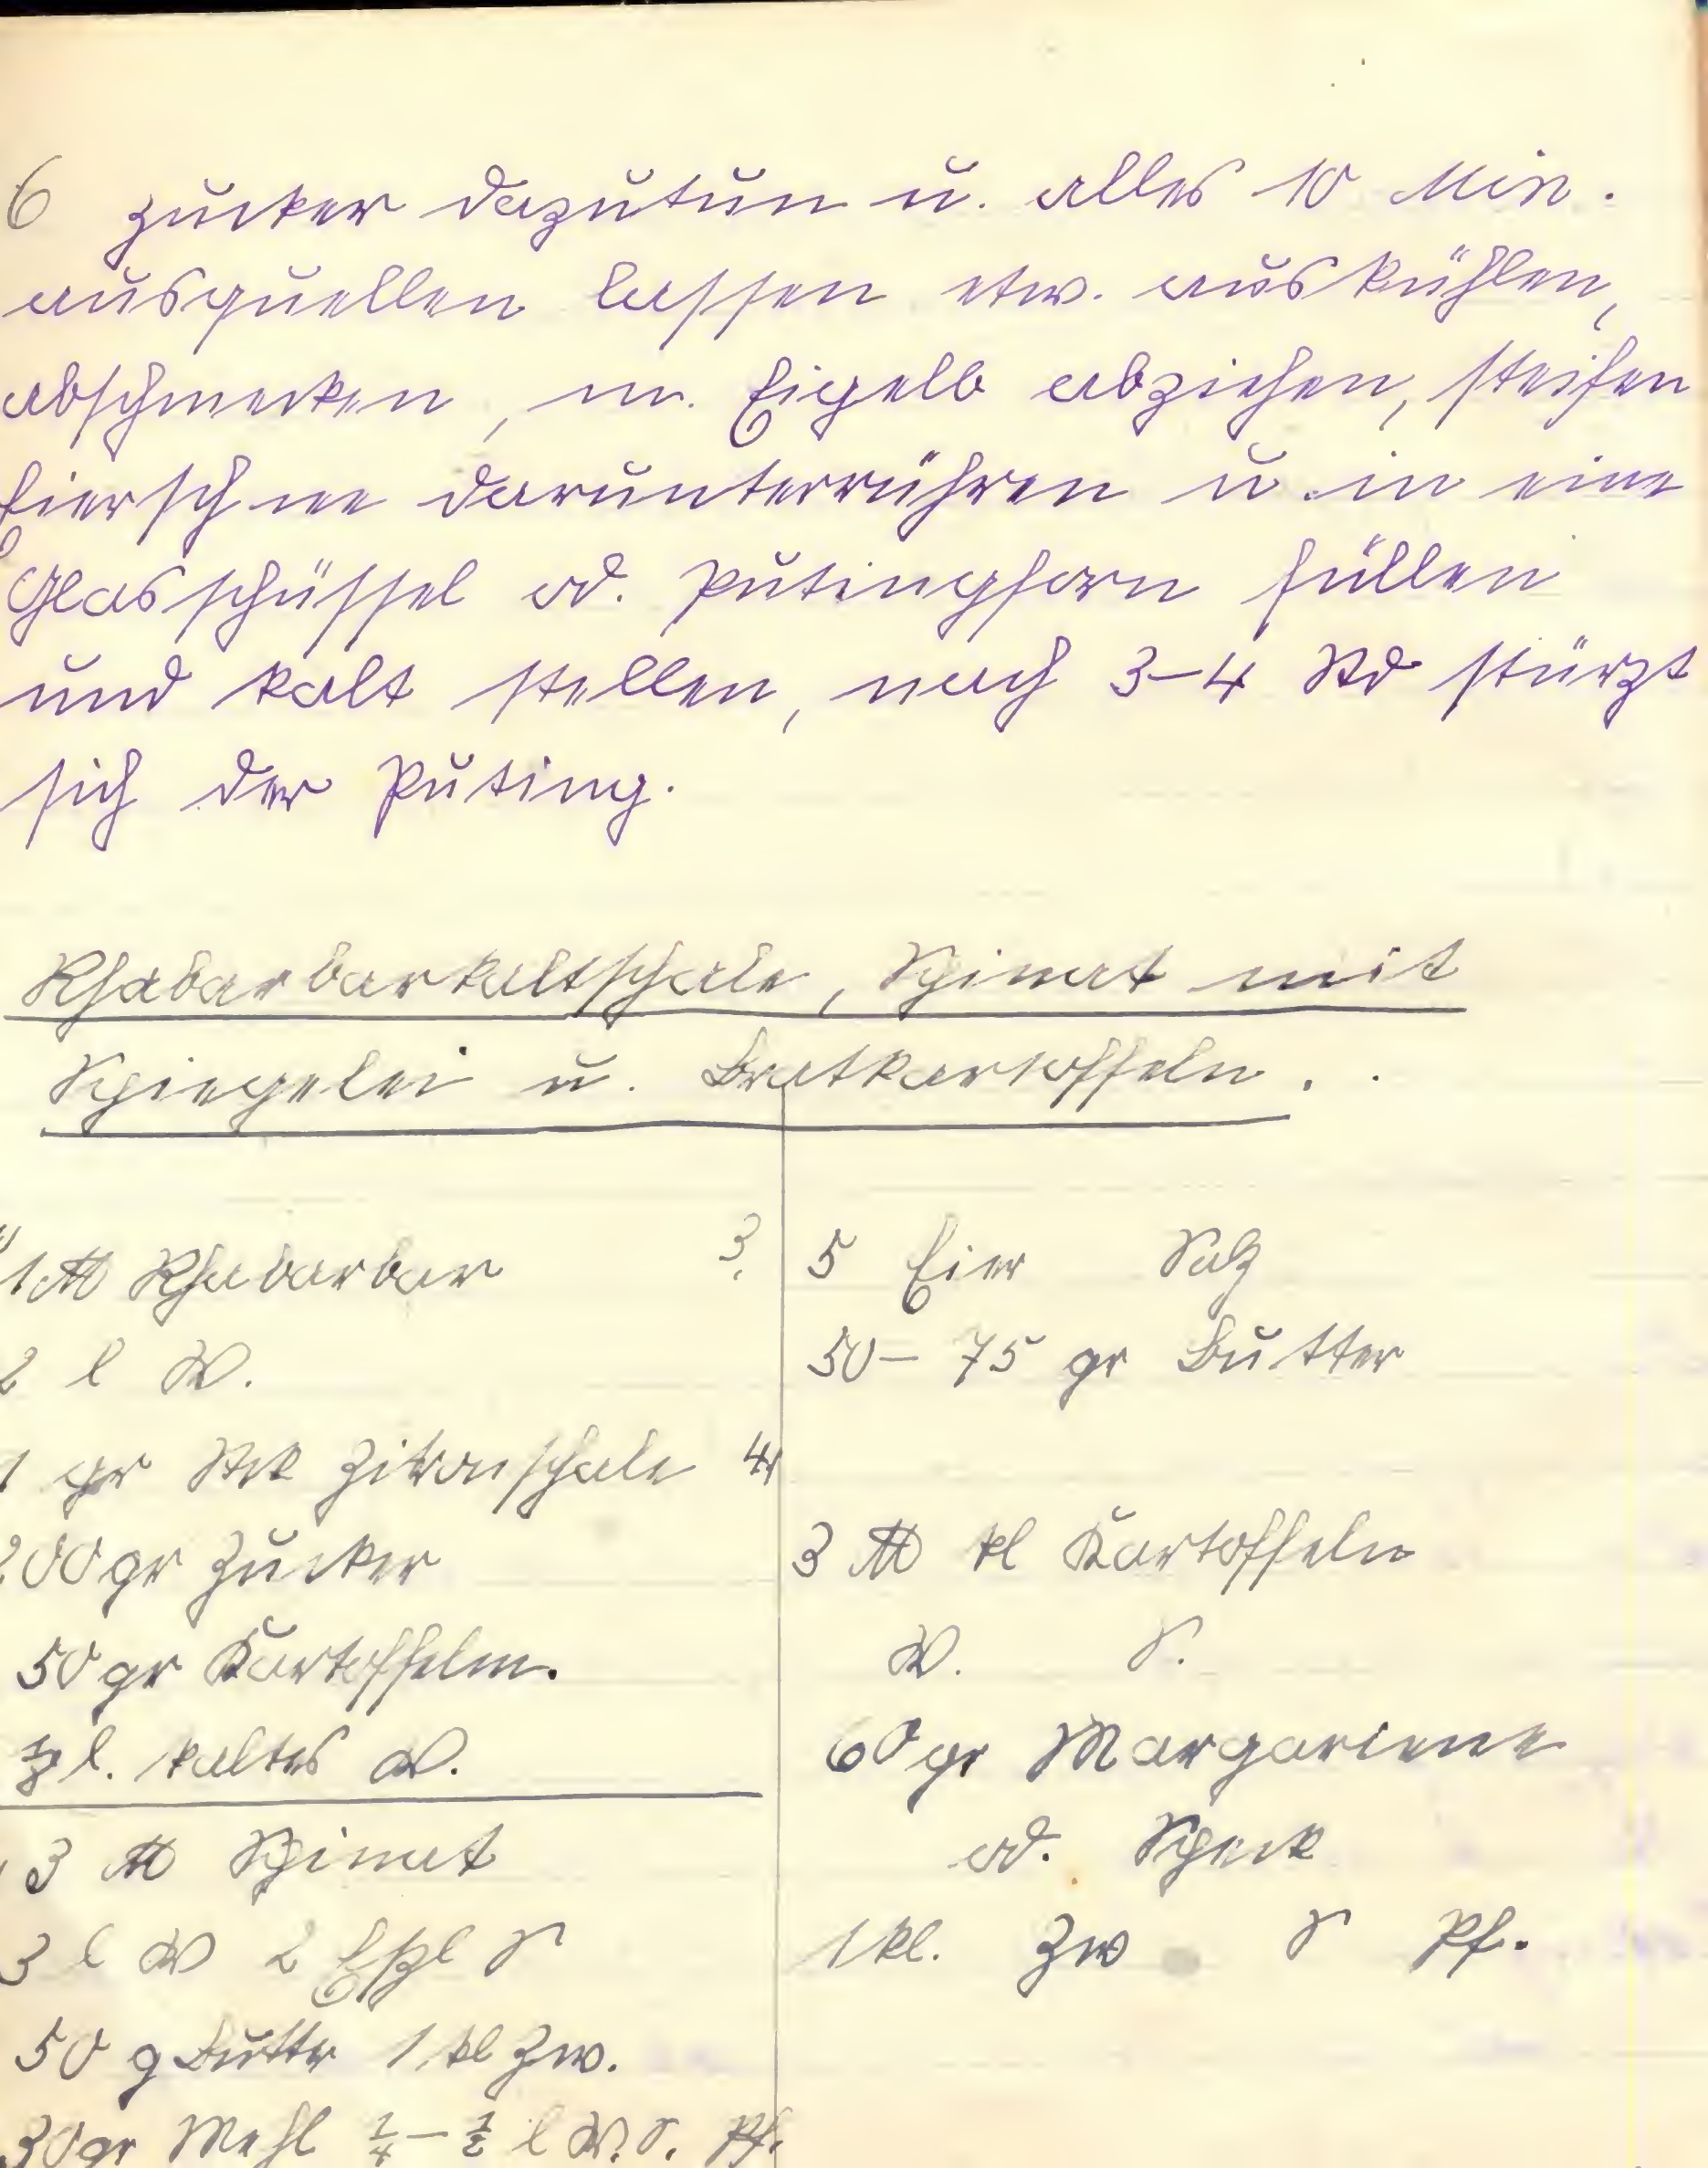 6 Zucker dazutun u. alles 10 Min.
ausquellen lassen etw. auskühlen,
abschmecken, m. Eigelb abziehen, steifen
Eierschnee darunterrühren u. in eine
Glasschüssel od. Putingform füllen
und kalt stellen, nach 3-4 Std stürzt
sich der Puting.
Rhabarbarkaltschale, Spinat mit
Spiegelei u. Bratkartoffeln.
1 ℔ Rhabarbar
2 l W.
1 gr Stck Zitronschale
200 gr Zucker
50 gr Kartoffelm.
⅛ l. kaltes W.
3 ℔ Spinat
3 l W 2 Eßl S
50 g Buttr 1 kl Zw.
30 gr Mehl ¼-½ l W. S. Pf.
3. 5 Eier Salz
50-75 gr Butter
4
3 ℔ kl Kartoffeln
W. S.
60 gr Margariene
od. Speck
1 kl. Zw S Pf.